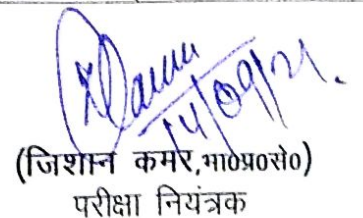 14/09/21.
(जिशान कमर,भा०प्र०से०)
परीक्षा नियंत्रक